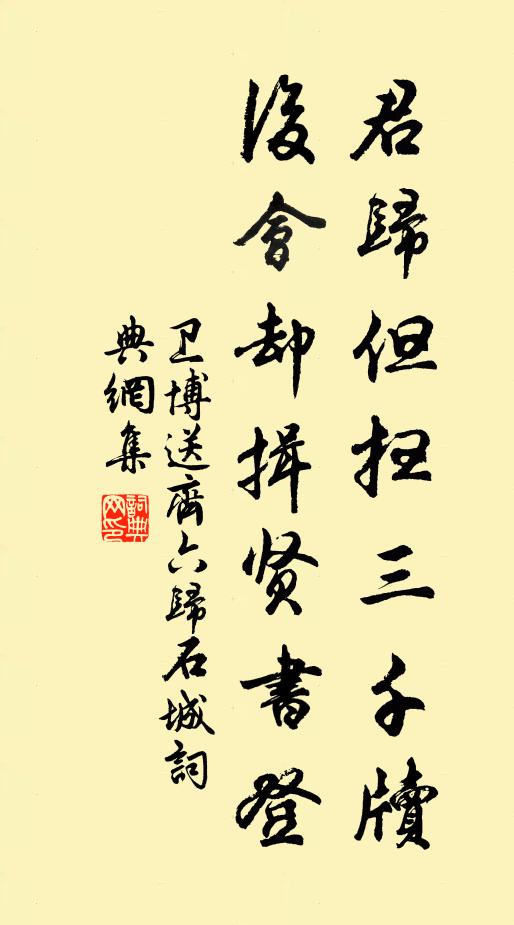 君歸但扫三千牘
後會却揖贤書登
卫博送齊六歸石城詞
典網集
詞典网印